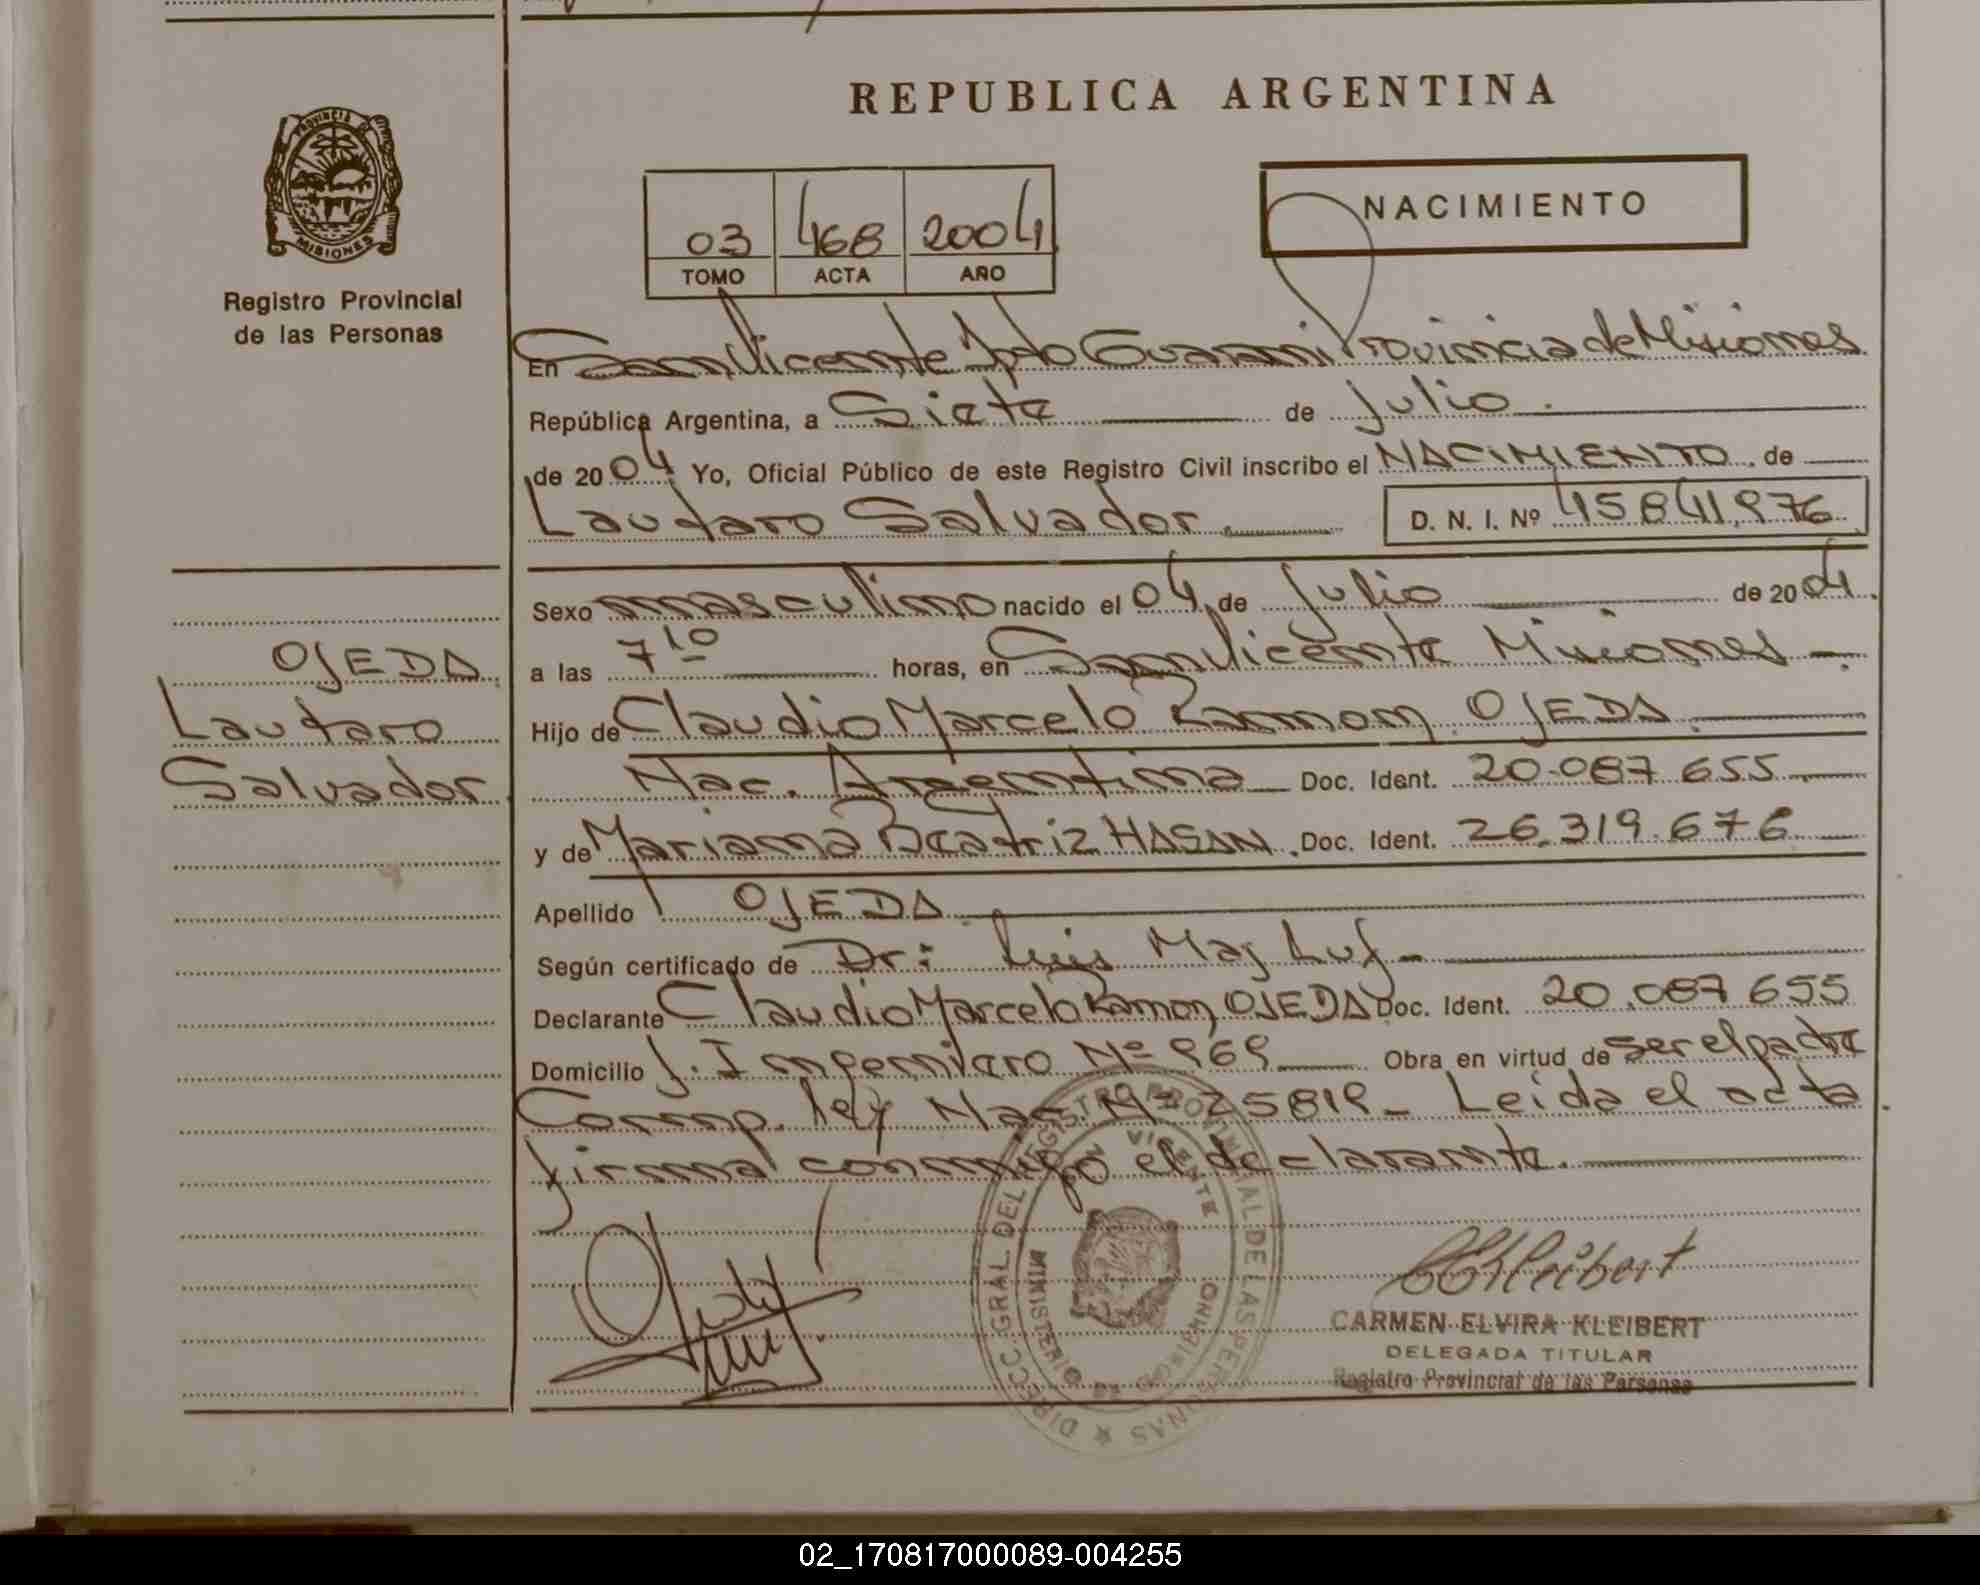 REPUBLICA ARGENTINA
PROVINCIA DE
MISIONES
Registro Provincial
de las Personas
03 468 2004
TOMO ACTA AÑO
NACIMIENTO
En San Vicente Dpto Guarani Provincia de Misiones
República Argentina, a Siete de Julio.
de 2004 Yo, Oficial Público de este Registro Civil inscribo el NACIMIENTO de
Lautaro Salvador. D. N. I. Nº 45841976
Sexo masculino nacido el 04 de Julio de 2004.
a las 7 10 horas, en San Vicente Misiones
OJEDA
Lautaro
Salvador
Hijo de Claudio Marcelo Ramon OJEDA
Nac. Argentina Doc. Ident. 20.087 655
y de Mariana Beatriz HASAN. Doc. Ident. 26.319.676
Apellido OJEDA
Según certificado de Dr: Luis Maj Luf
Declarante Claudio Marcelo Ramon OJEDA Doc. Ident. 20.087 655
Domicilio J. Ingeniero Nº 969 Obra en virtud de ser el padre
Comp. ley Nac. Nº 25819 - Leida el acta
firma conmigo el declarante.
DIRECC. GRAL DEL REGISTRO PROVINCIAL DE LAS PERSONAS
SAN VICENTE
MINISTERIO DE GOBIERNO
CARMEN ELVIRA KLEIBERT
DELEGADA TITULAR
Registro Provincial de las Personas
02_170817000089-004255